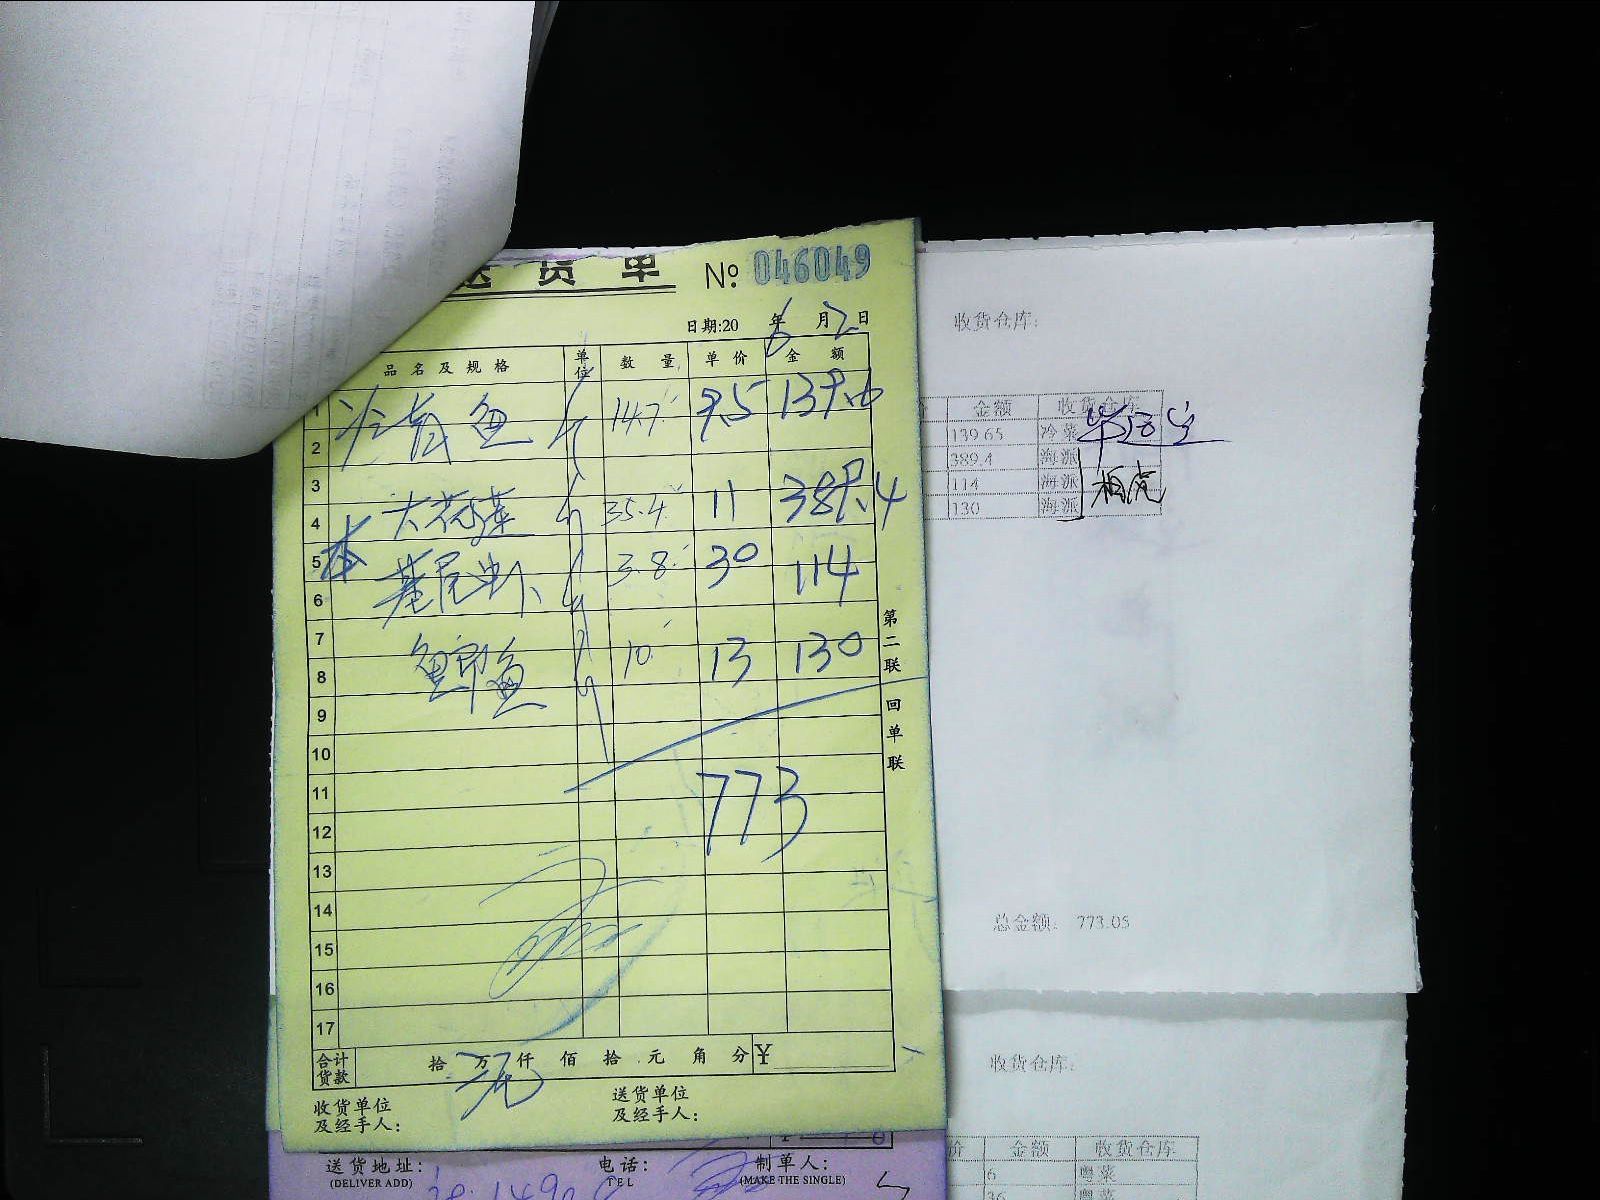 送货单 № 046049
日期:20 年 6 月 2 日
品名及规格 单位 数量 单价 金额
1
2 鱼 14.7 9.5 139.6
3
4 35.4 11 389.4
5 基尾虾 3.8 30 114
6
7
8 鱼 10 13 130
9
10
11
12 773
13
14
15
16
17
合计货款 拾 万 仟 佰 拾 元 角 分 ¥
收货单位及经手人：
送货单位及经手人：
第二联 回单联
送货地址：
(DELIVER ADD)
电话：
TEL
制单人：
(MAKE THE SINGLE)
收货仓库:
金额 收货仓库
139.65 冷菜
389.4 海派
114 海派
130 海派
总金额: 773.05
收货仓库:
价 金额 收货仓库
6 粤菜
36 粤菜